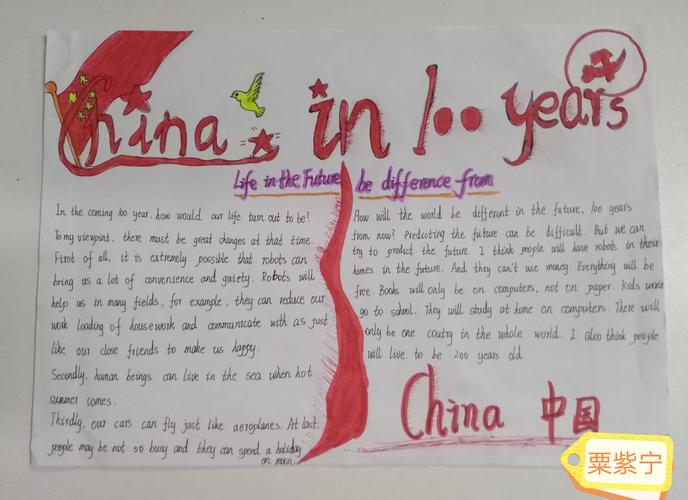 China in 100 years
Life in the Future be difference from
In the coming 100 year, how would our life turn out to be?
To my viewpoint, there must be great changes at that time.
First of all, it is extremely possible that robots can
bring us a lot of convenience and gaiety. Robots will
help us in many fields, for example, they can reduce our
work loading of housework and communicate with as just
like our close friends to make us happy.
Secondly, human beings can live in the sea when hot
summer comes.
Thirdly, our cars can fly just like aeroplanes. At last,
people may be not so busy and they can spend a holiday
on moon.
How will the world be different in the future, 100 years
from now? Predicting the future can be difficult. But we can
try to predict the future. I think people will have robots in their
homes in the future. And they can't use money. Everything will be
free. Books will only be on computers, not on paper. Kids won't
go to school. They will study at home on computers. There will
only be one coutry in the whole world. I also think people
will live to be 200 years old.
China 中国
粟紫宁